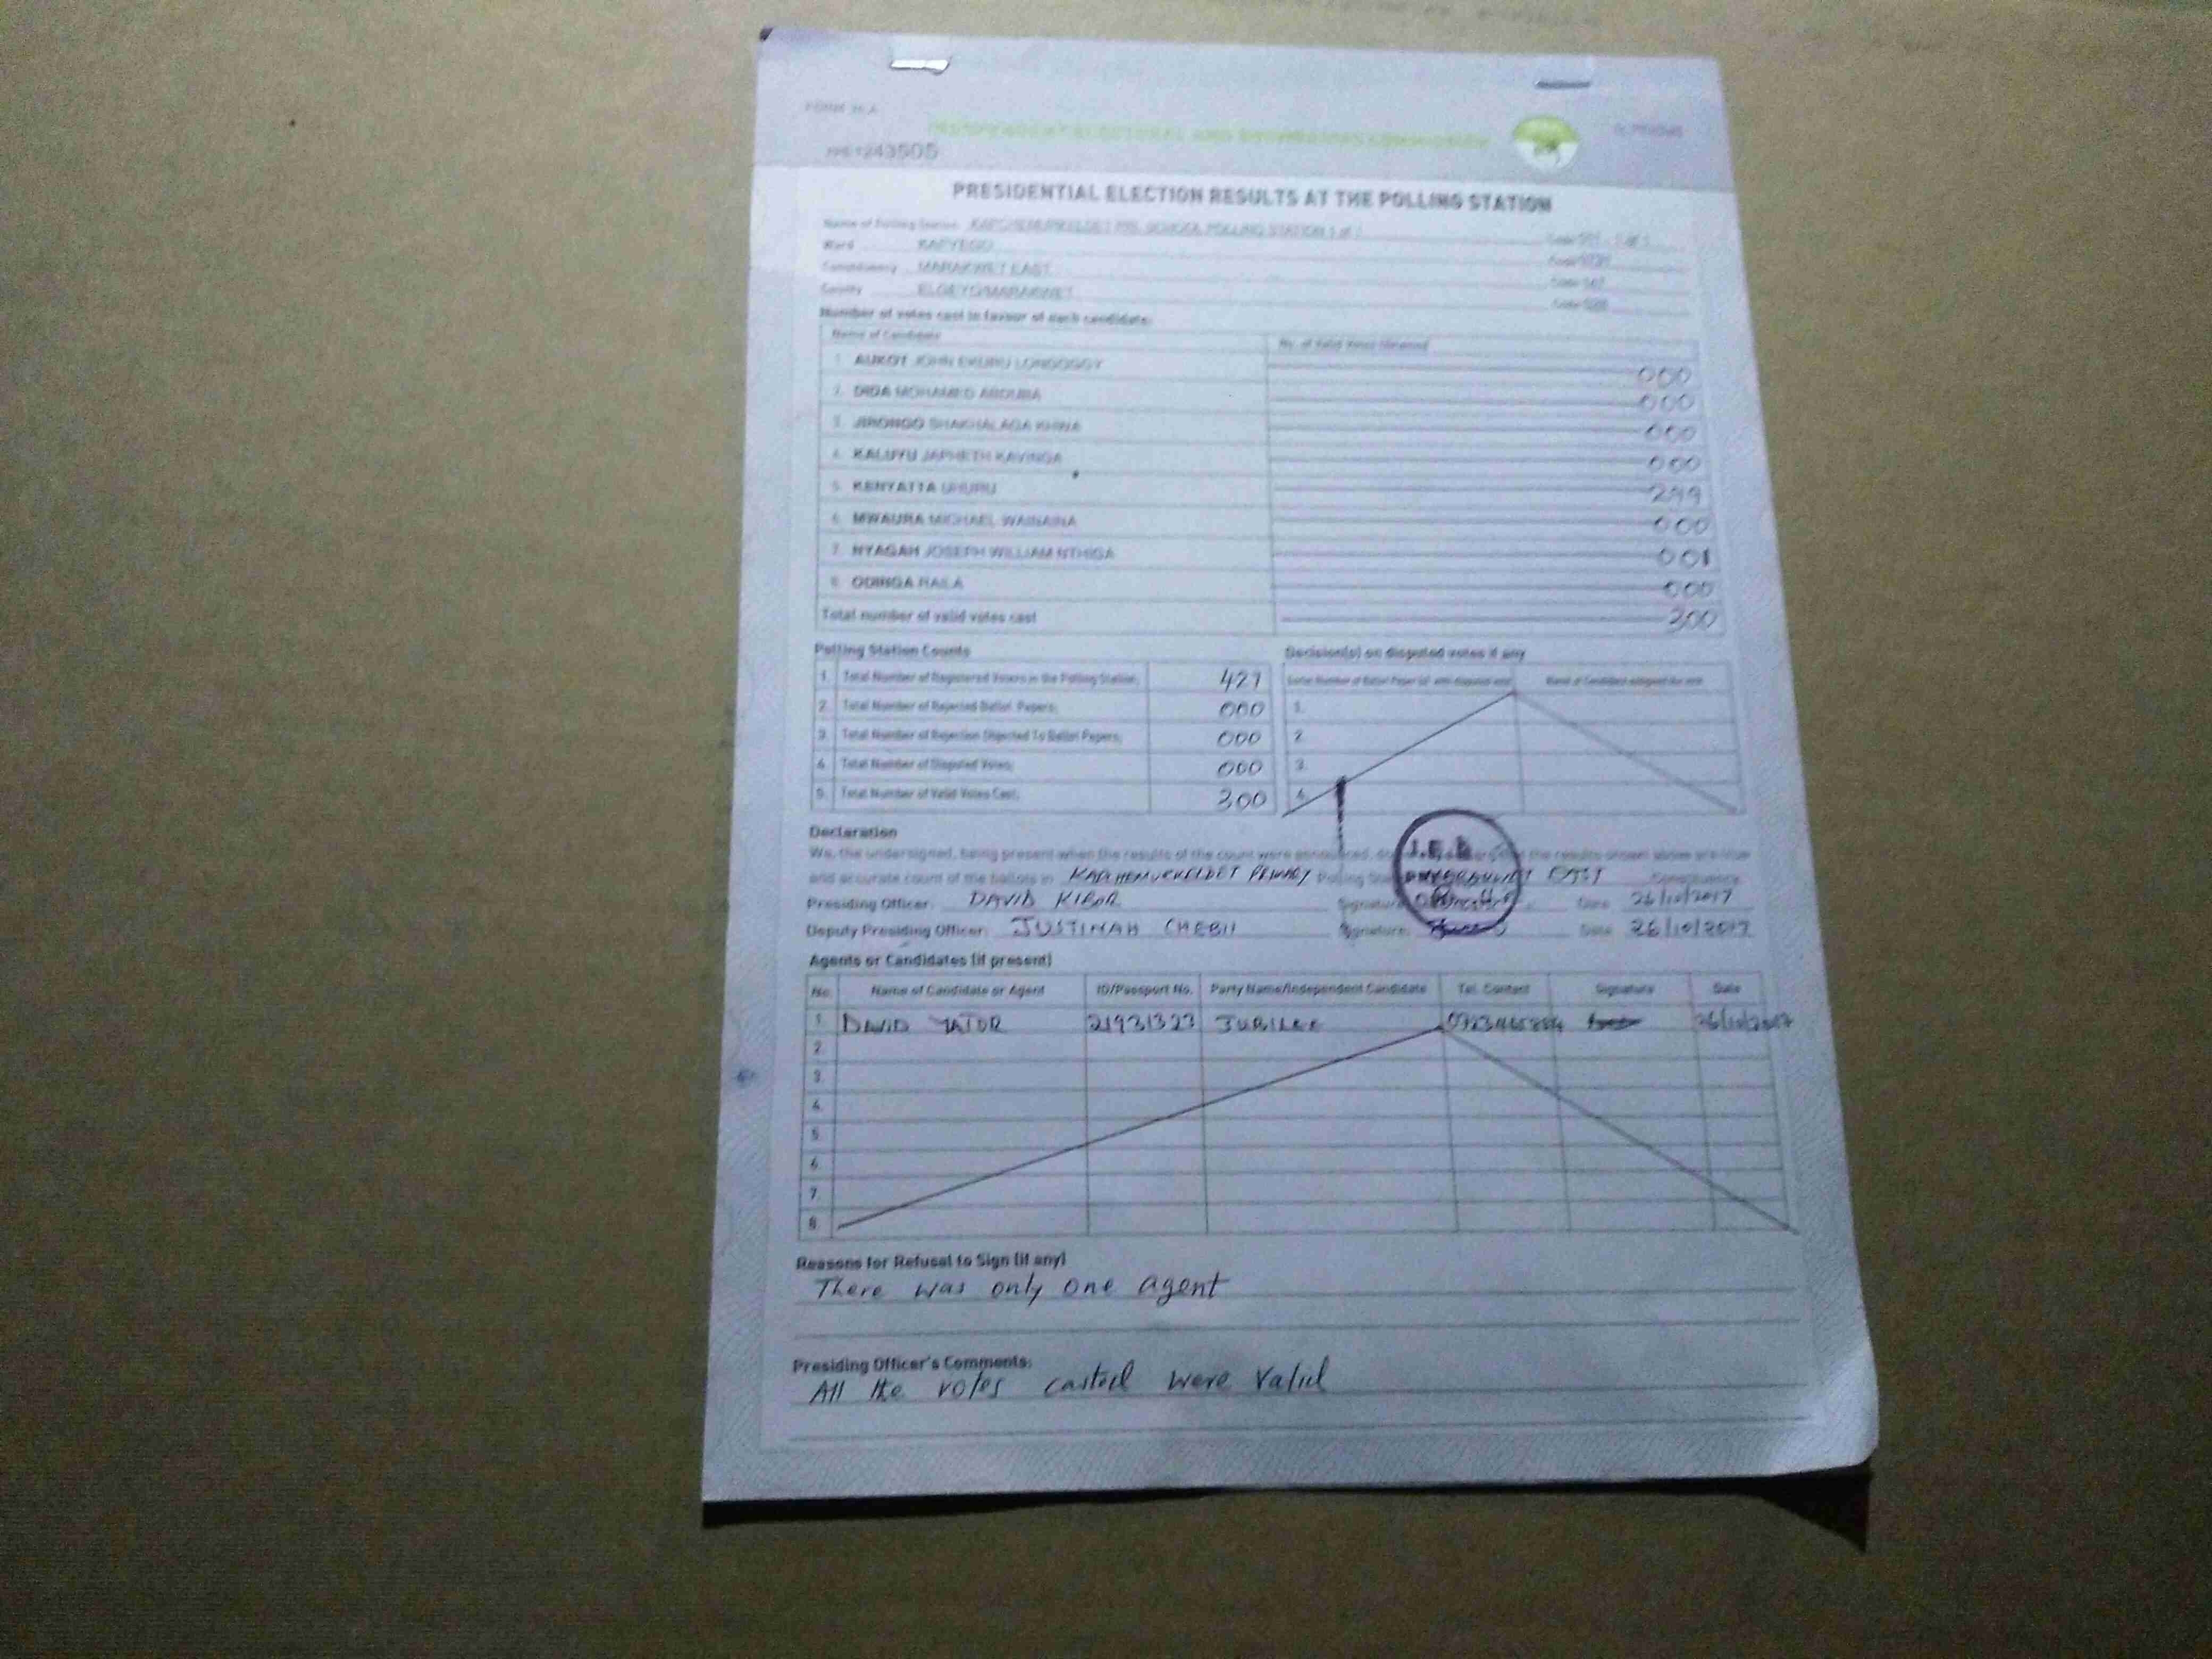 FORM 34A
INDEPENDENT ELECTORAL AND BOUNDARIES COMMISSION
1243505
PRESIDENTIAL ELECTION RESULTS AT THE POLLING STATION
Name of Polling Station POLLING STATION 1 of 1
Ward KAPYEGO
Constituency MARAKWET EAST
County ELGEYO/MARAKWET
Number of votes cast in favour of each candidate:
Name of Candidate No. of Valid Votes Obtained
1. AUKOT JOHN EKURU LONGOGGY 000
2. DIDA MOHAMED ABDUBA 000
3. JIRONGO SHAKHALAGA KHWA 000
4. KALUYU JAPHETH KAVINGA 000
5. KENYATTA UHURU 299
6. MWAURA MICHAEL WAINAINA 000
7. NYAGAH JOSEPH WILLIAM NTHIGA 001
8. ODINGA RAILA 000
Total number of valid votes cast 300
Polling Station Counts Decision(s) on disputed votes if any
1. Total Number of Registered Voters in the Polling Station; 427
2. Total Number of Rejected Ballot Papers; 000 1.
3. Total Number of Rejection Objected To Ballot Papers; 000 2.
4. Total Number of Disputed Votes; 000 3.
5. Total Number of Valid Votes Cast; 300 4.
Declaration
We, the undersigned, being present when the results of the count were announced, the results shown above are true
and accurate count of the ballots in Polling EAST Constituency
Presiding Officer: DAVID KIBOR Signature: Date 26/10/2017
Deputy Presiding Officer: JUSTINAH CHEBII Signature: Date 26/10/2017
Agents or Candidates (if present)
No. Name of Candidate or Agent ID/Passport No. Party Name/Independent Candidate Tel. Contact Signature Date
1 DAVID YATOR 21931323 JUBILEE 26/10/2017
2.
3.
4.
5.
6.
7.
8.
Reasons for Refusal to Sign (if any)
There was only one agent
Presiding Officer's Comments:
All the votes casted were valid